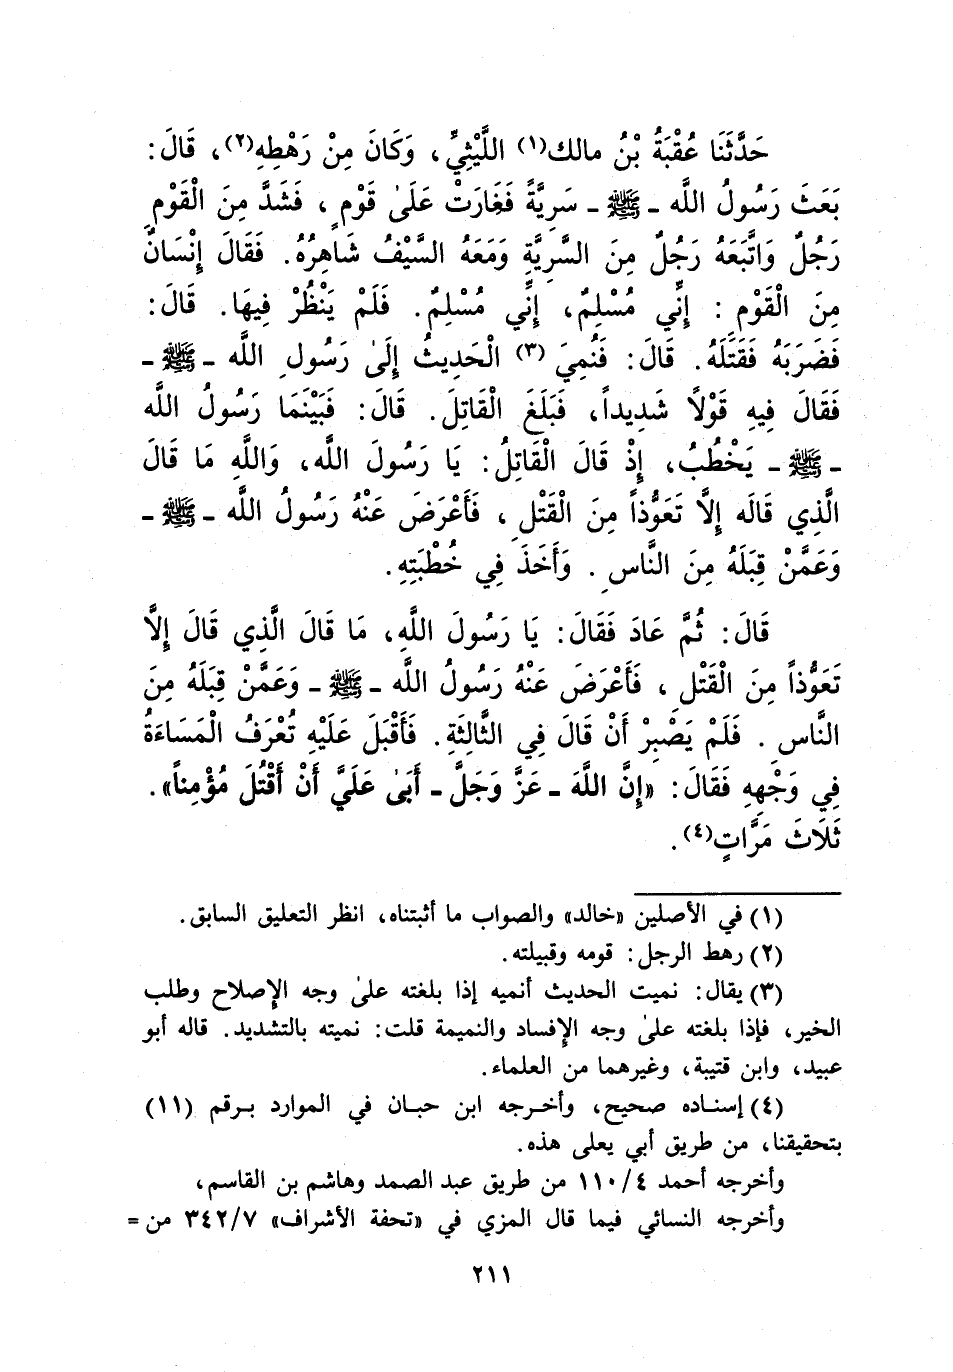 حَدَّثَنَا عُقْبَةُ بْنُ مالك(١) اللَّيْثِيِّ، وَكَانَ مِنْ رَهْطِهِ(٢)، قَالَ:
بَعَثَ رَسُولُ اللَّه ـ ﷺ ـ سَرِيَّةً فَغَارَتْ عَلَىٰ قَوْمٍ، فَشَدَّ مِنَ الْقَوْمِ
رَجُلٌ وَاتَّبَعَهُ رَجُلٌ مِنَ السَّرِيَّةِ وَمَعَهُ السَّيْفُ شَاهِرُهُ. فَقَالَ إِنْسَانٌ
مِنَ الْقَوْمِ: إِنِّي مُسْلِمٌ، إِنِّي مُسْلِمٌ. فَلَمْ يَنْظُرْ فِيهَا. قَالَ:
فَضَرَبَهُ فَقَتَلَهُ. قَالَ: فَنُمِيَ (٣) الْحَدِيثُ إِلَىٰ رَسُولِ اللَّه ـ ﷺ ـ
فَقَالَ فِيهِ قَوْلاً شَدِيداً، فَبَلَغَ الْقَاتِلَ. قَالَ: فَبَيْنَمَا رَسُولُ اللَّه
ـ ﷺ ـ يَخْطُبُ، إِذْ قَالَ الْقَاتِلُ: يَا رَسُولَ اللَّه، وَاللَّهِ مَا قَالَ
الَّذِي قَالَه إِلَّا تَعَوُّذاً مِنَ الْقَتْلِ، فَأَعْرَضَ عَنْهُ رَسُولُ اللَّه ـ ﷺ ـ
وَعَمَّنْ قِبَلَهُ مِنَ النَّاسِ. وَأَخَذَ فِي خُطْبَتِهِ.
قَالَ: ثُمَّ عَادَ فَقَالَ: يَا رَسُولَ اللَّهِ، مَا قَالَ الَّذِي قَالَ إِلَّا
تَعَوُّذاً مِنَ الْقَتْلِ، فَأَعْرَضَ عَنْهُ رَسُولُ اللَّه ـ ﷺ ـ وَعَمَّنْ قِبَلَهُ مِنَ
النَّاسِ. فَلَمْ يَصْبِرْ أَنْ قَالَ فِي الثَّالِثَةِ. فَأَقْبَلَ عَلَيْهِ تُعْرَفُ الْمَسَاءَةُ
فِي وَجْهِهِ فَقَالَ: «إِنَّ اللَّهَ ـ عَزَّ وَجَلَّ ـ أَبَىٰ عَلَيَّ أَنْ أَقْتُلَ مُؤْمِناً».
ثَلَاثَ مَرَّاتٍ(٤).
(١) في الأصلين «خالد» والصواب ما أثبتناه، انظر التعليق السابق.
(٢) رهط الرجل: قومه وقبيلته.
(٣) يقال: نميت الحديث أنميه إذا بلغته علىٰ وجه الإصلاح وطلب
الخير، فإذا بلغته علىٰ وجه الإفساد والنميمة قلت: نميته بالتشديد. قاله أبو
عبيد، وابن قتيبة، وغيرهما من العلماء.
(٤) إسناده صحيح، وأخرجه ابن حبان في الموارد برقم (١١)
بتحقيقنا، من طريق أبي يعلى هذه.
وأخرجه أحمد ٤/ ١١٠ من طريق عبد الصمد وهاشم بن القاسم،
وأخرجه النسائي فيما قال المزي في «تحفة الأشراف» ٣٤٢/٧ من =
٢١١